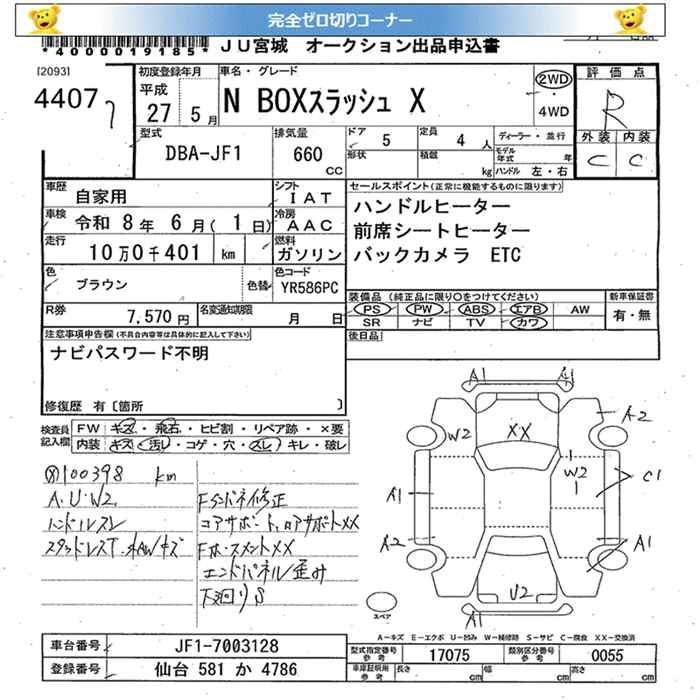 完全ゼロ切りコーナー
*4000019185*
JU宮城 オークション出品申込書
[2093]
4407
初度登録年月
平成
27 5月
車名・グレード
N BOXスラッシュ X
2WD
4WD
評価点
R
外装 内装
C C
型式
DBA-JF1
排気量
660
CC
ドア 5
定員 4 人
ディーラー・並行
形状
積載 kg
モデル年式 年
ハンドル 左・右
車歴
自家用
シフト
IAT
セールスポイント(正常に機能するものに限ります)
ハンドルヒーター
前席シートヒーター
バックカメラ ETC
車検
令和 8年 6月( 1日)
冷房
AAC
走行
10万0千401 km
燃料
ガソリン
色
ブラウン
色替
色コード
YR586PC
R券
7,570円
名変通知期限
月 日
装備品 (純正品に限り○をつけてください)
PS PW ABS エアB AW
SR ナビ TV カワ
新車保証書
有・無
後日品
注意事項申告欄(不具合内容等は具体的に記入して下さい)
ナビパスワード不明
修復歴 有〔箇所 〕
検査員記入欄
FW キズ・飛石・ヒビ割・リペア跡・×要
内装 キズ・汚レ・コゲ・穴・スレ・キレ・破レ
100398 km
A.U.W2
ハンドルスレ
スタッドレスT.
コアサポート,ロアサポートXX
エンドパネル歪み
下廻りS
A1
A1
A2
W2
XX
W2
C1
A1
A2
A1
U2
A1
スペア
A－キズ E－エクボ U－凹み W－補修跡 S－サビ C－腐食 XX－交換済
車台番号
JF1-7003128
登録番号
仙台 581 か 4786
型式指定番号
参考
17075
類別区分番号
参考
0055
車庫証明用
参考
長さ cm
幅 cm
高さ cm